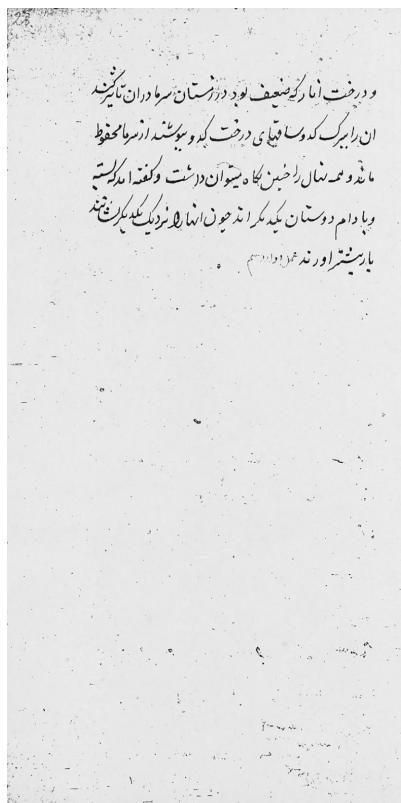 و درخت انار که ضعیف بود در زستان سرما دران تاثیر کند
ان را ببرک کدو وساقهای درخت کدو بپوشند از سرما محفوظ
ماند و همه نهال را چنین نکاه میتوان داشت و کفته اند که پسته
و بادام دوستان یکدیکر اند چون انها را نزدیک یکدیکر نشانند
بار بیشتر اورند